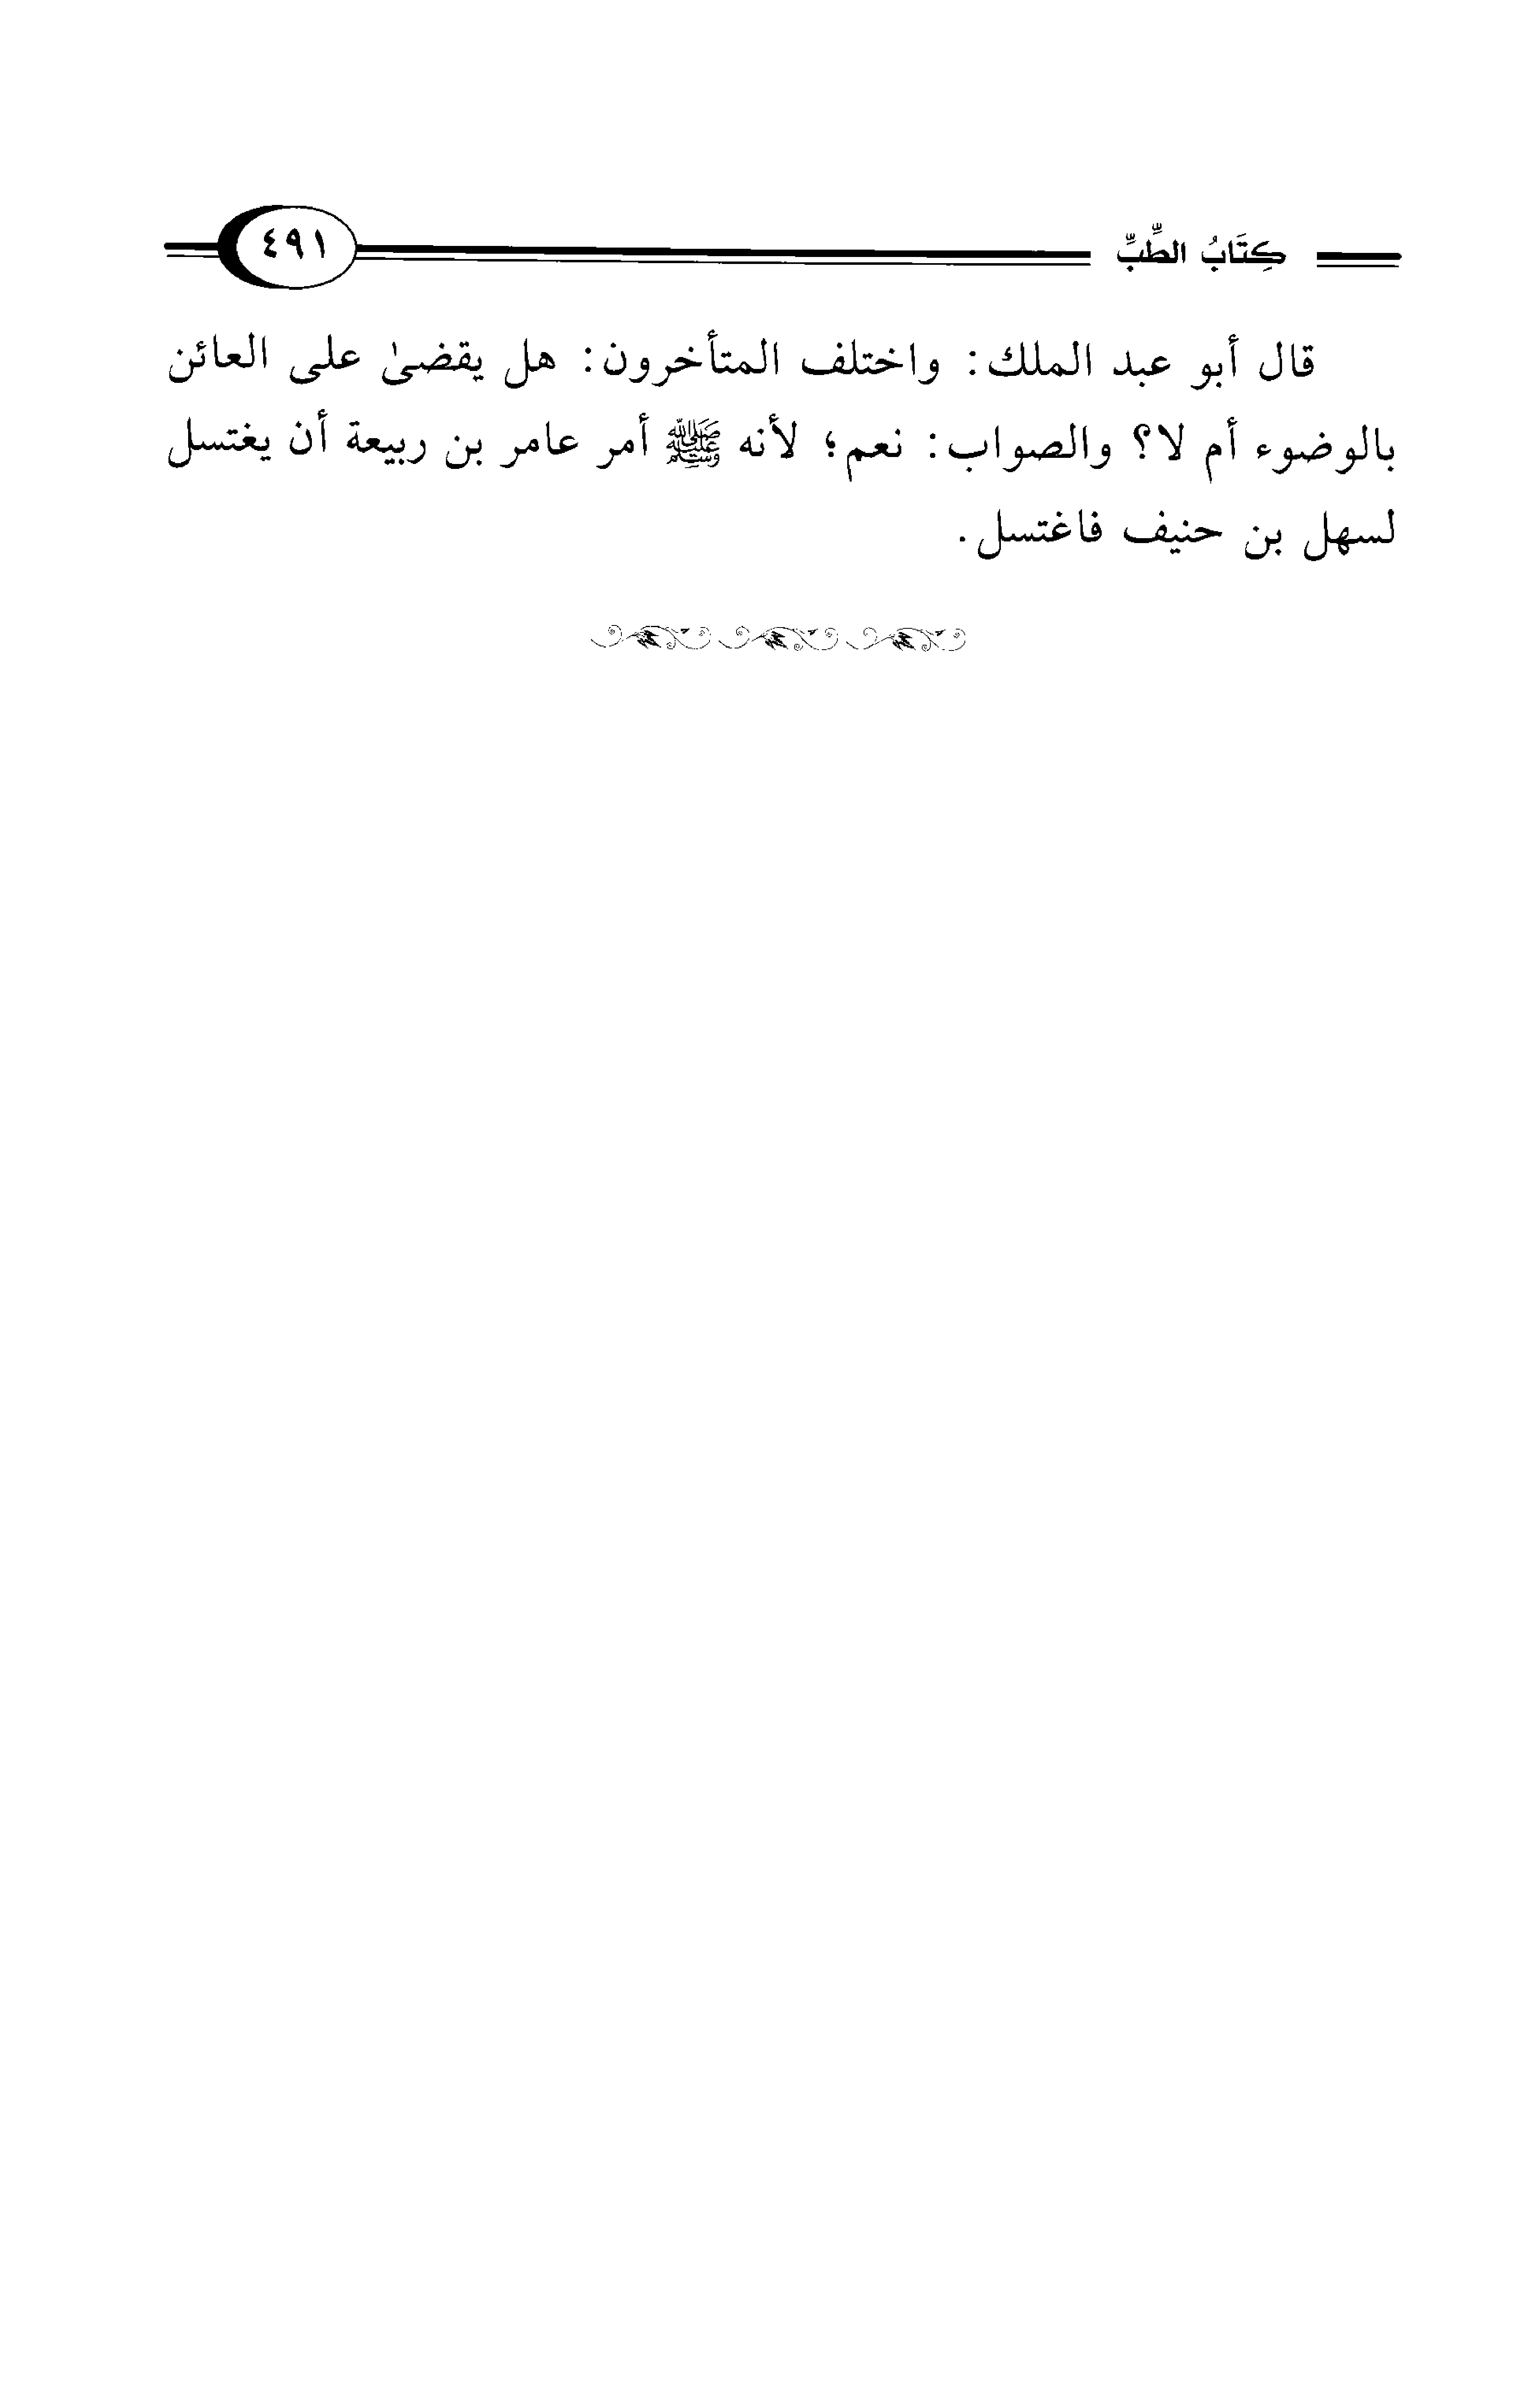 كِتَابُ الطِّبِّ ٤٩١
قال أبو عبد الملك: واختلف المتأخرون: هل يقضىٰ على العائن
بالوضوء أم لا؟ والصواب: نعم؛ لأنه ﷺ أمر عامر بن ربيعة أن يغتسل
لسهل بن حنيف فاغتسل.